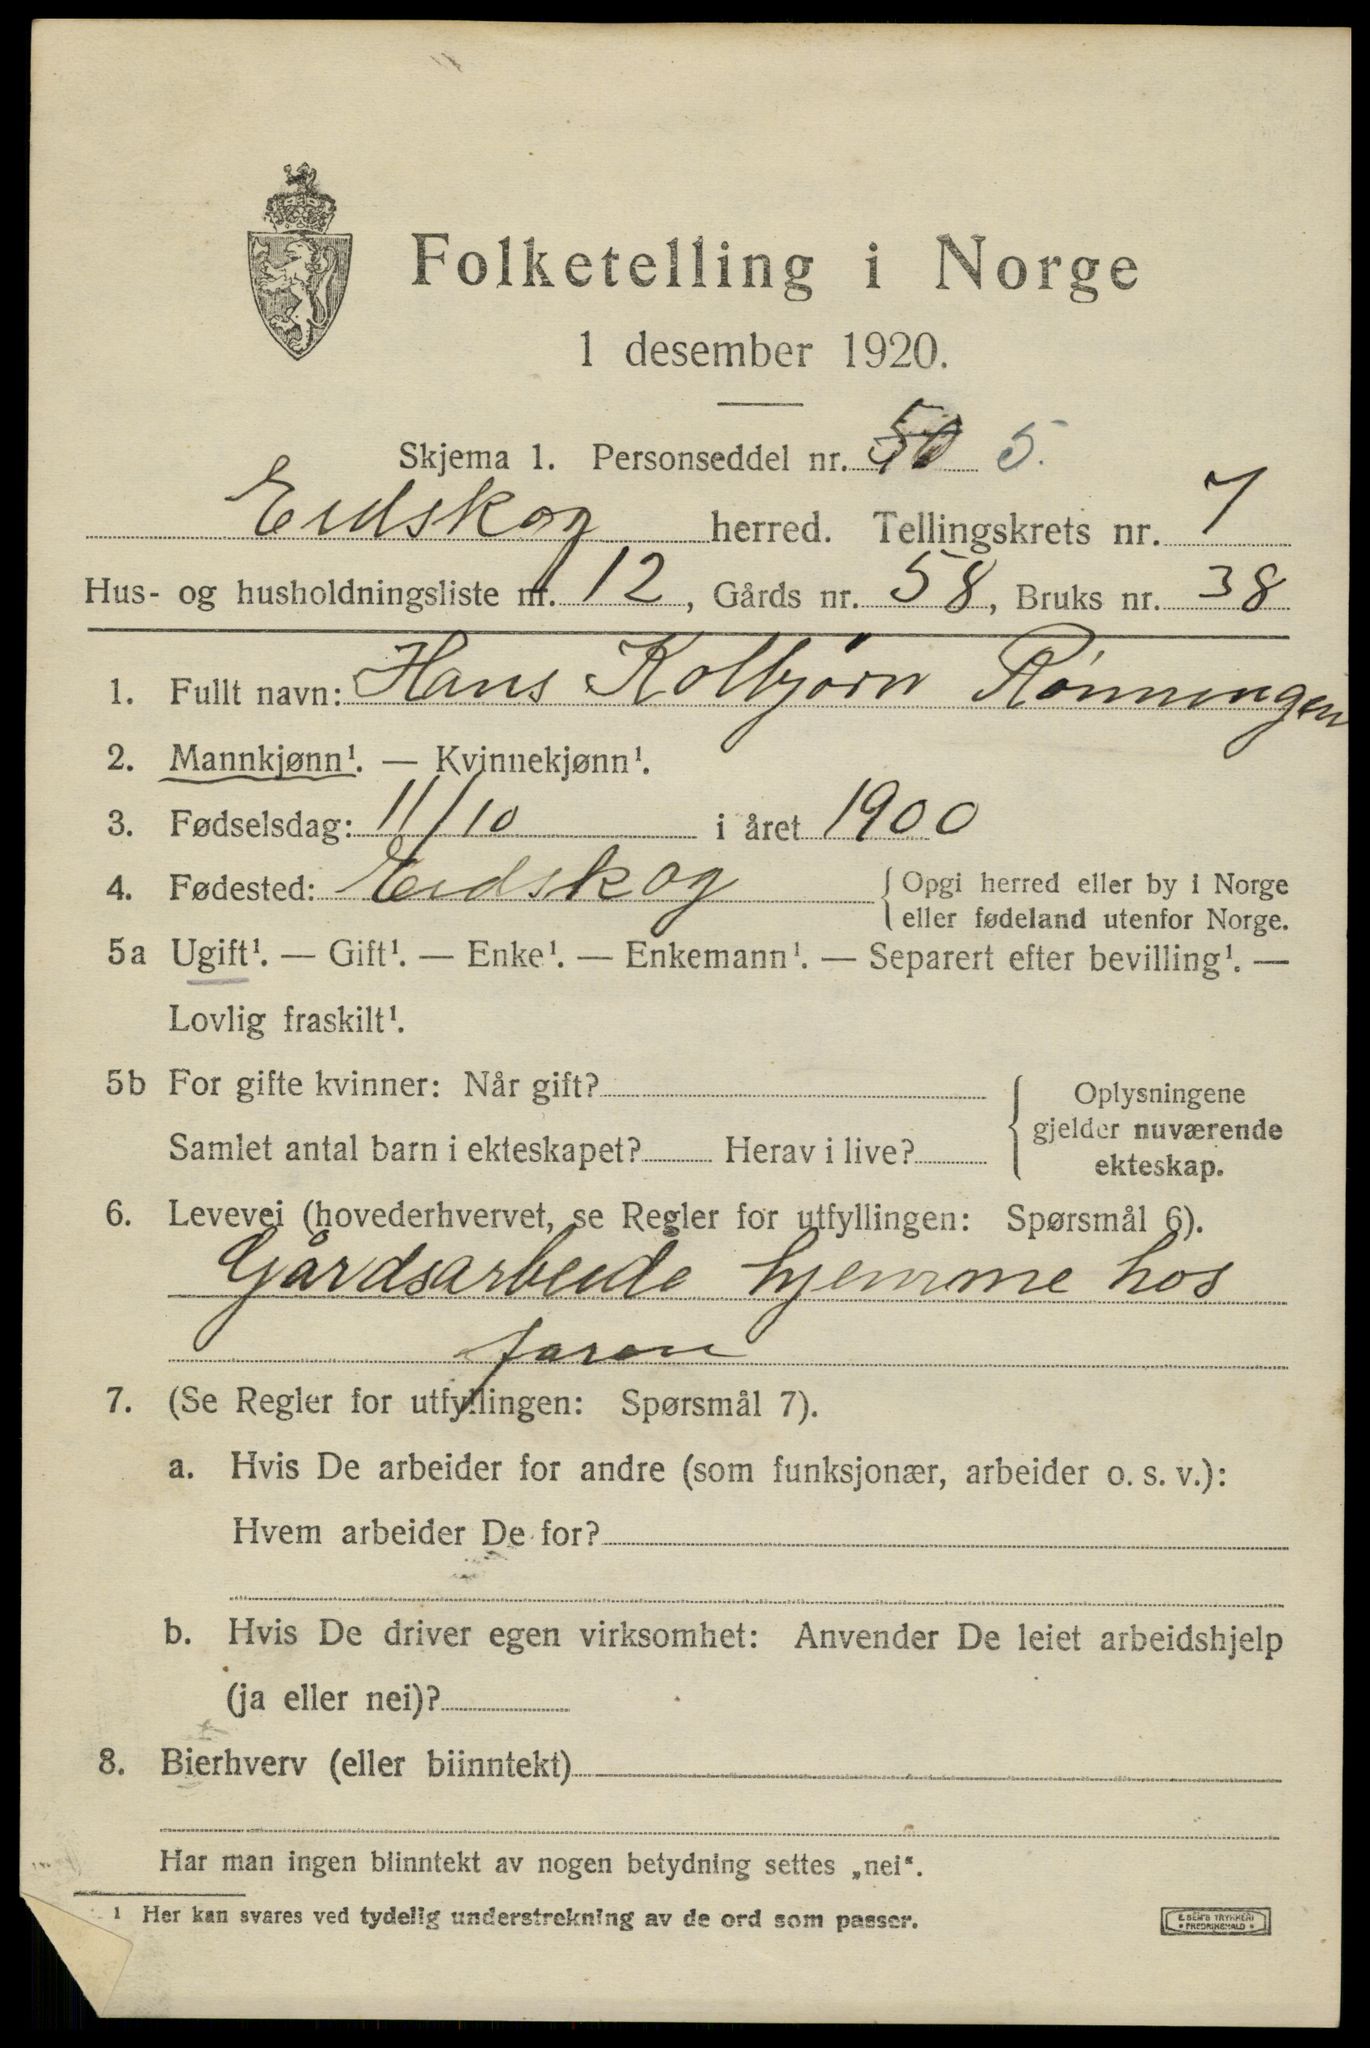 Folketelling i Norge
1 desember 1920.
Skjema 1. Personseddel nr. 5.
Eidskog herred. Tellingskrets nr. 7
Hus- og husholdningsliste nr. 12, Gårds nr. 58, Bruks nr. 38
1. Fullt navn: Hans Kolbjørn Rønningen
2. Mannkjønn¹. — Kvinnekjønn¹.
3. Fødselsdag: 11/10 i året 1900
4. Fødested: Eidskog {Opgi herred eller by i Norge
eller fødeland utenfor Norge.
5a Ugift¹. — Gift¹. — Enke¹. — Enkemann¹. — Separert efter bevilling¹. —
Lovlig fraskilt¹.
5b For gifte kvinner: Når gift?
Samlet antal barn i ekteskapet? Herav i live?
{Oplysningene
gjelder nuværende
ekteskap.
6. Levevei (hovederhvervet, se Regler for utfyllingen: Spørsmål 6).
Gårdsarbeide hjemme hos
faren
7. (Se Regler for utfyllingen: Spørsmål 7).
a. Hvis De arbeider for andre (som funksjonær, arbeider o. s. v.):
Hvem arbeider De for?
b. Hvis De driver egen virksomhet: Anvender De leiet arbeidshjelp
(ja eller nei)?
8. Bierhverv (eller biinntekt)
Har man ingen biinntekt av nogen betydning settes „nei“.
¹ Her kan svares ved tydelig understrekning av de ord som passer.
E. SEM'S TRYKKERI
• FREDRIKSHALD •